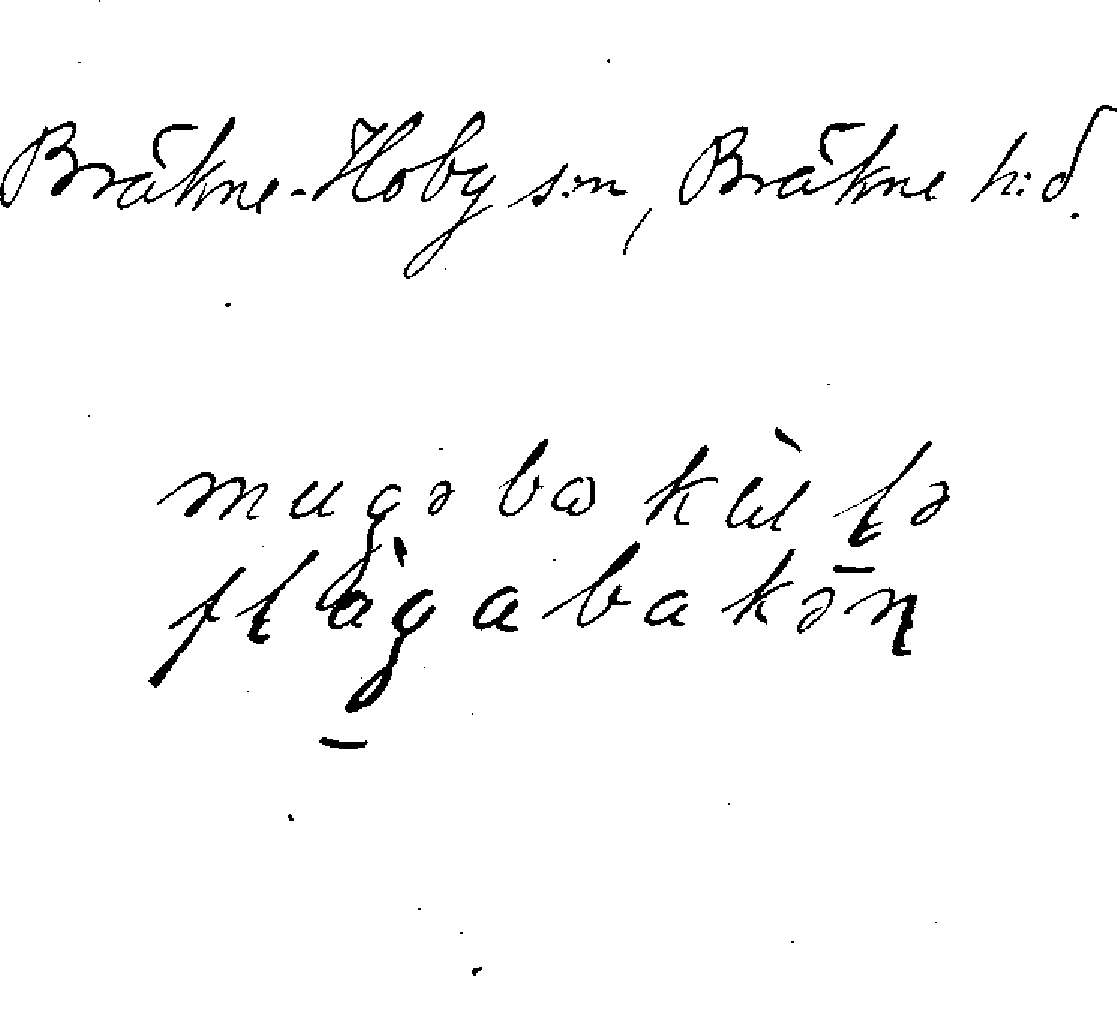 Bräkne-Hoby s:n, Bräkne h:d.
mugəbɷkùlɬə
flàgabakən